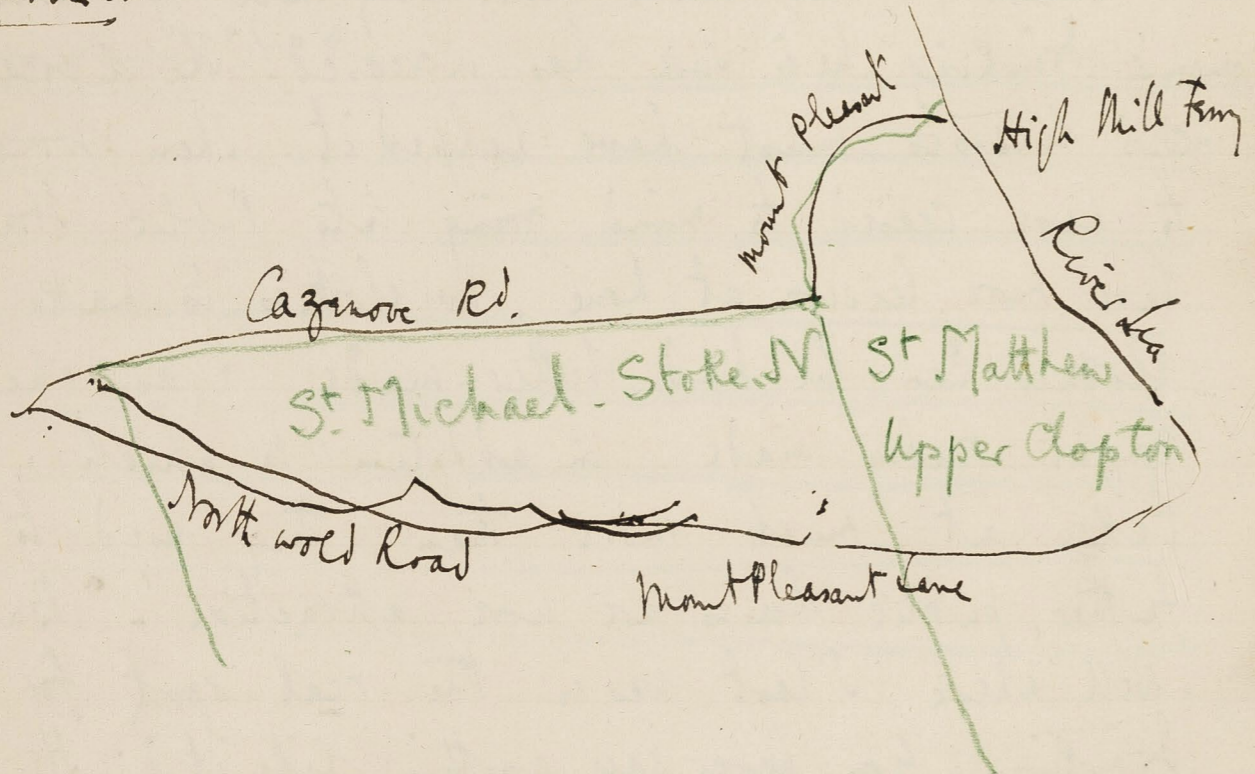 Mount Pleasant
High Mill Ferry
River Lea
Cazenove Rd.
St. Michael - Stoke. N
St Matthew
Upper Clapton
Northwold Road
Mount Pleasant Lane